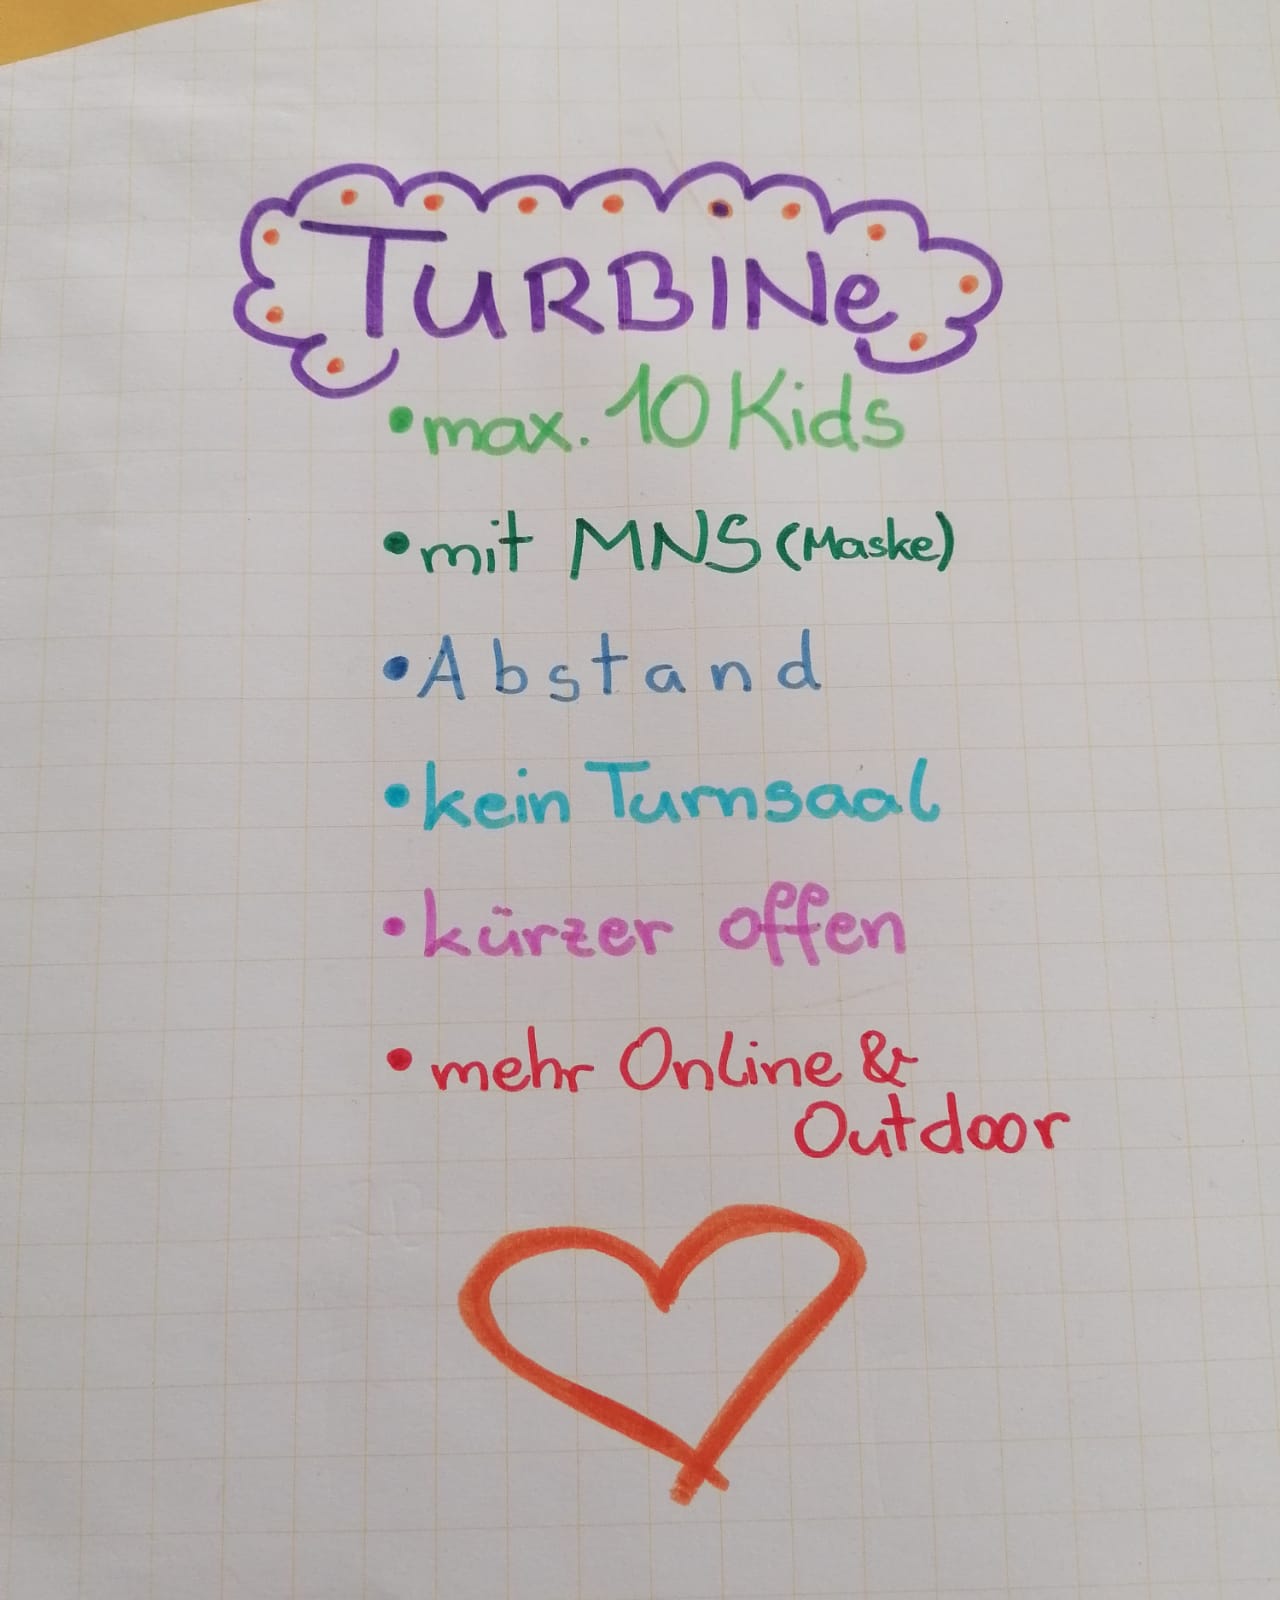 TURBINe
• max. 10 Kids
• mit MNS (Maske)
• Abstand
• kein Turnsaal
• kürzer offen
• mehr Online &
Outdoor